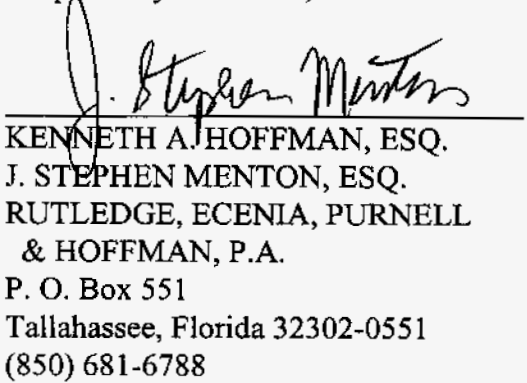 J. Stephen Menton
KENNETH A. HOFFMAN, ESQ.
J. STEPHEN MENTON, ESQ.
RUTLEDGE, ECENIA, PURNELL
& HOFFMAN, P.A.
P. O. Box 551
Tallahassee, Florida 32302-0551
(850) 681-6788